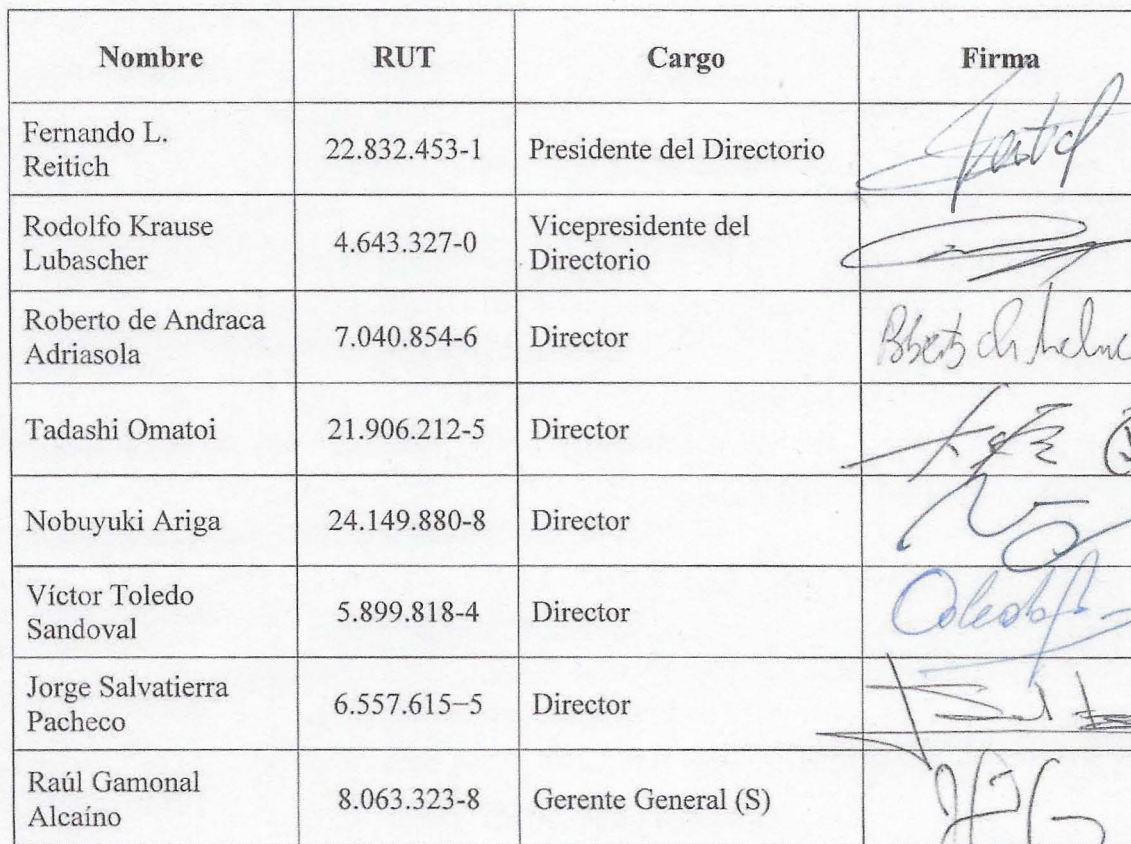 Nombre RUT Cargo Firma
Fernando L.
Reitich
22.832.453-1 Presidente del Directorio
Rodolfo Krause
Lubascher
4.643.327-0
Vicepresidente del
Directorio
Roberto de Andraca
Adriasola
7.040.854-6 Director
Tadashi Omatoi 21.906.212-5 Director
Nobuyuki Ariga 24.149.880-8 Director
Víctor Toledo
Sandoval
5.899.818-4 Director
Jorge Salvatierra
Pacheco
6.557.615-5 Director
Raúl Gamonal
Alcaíno
8.063.323-8 Gerente General (S)